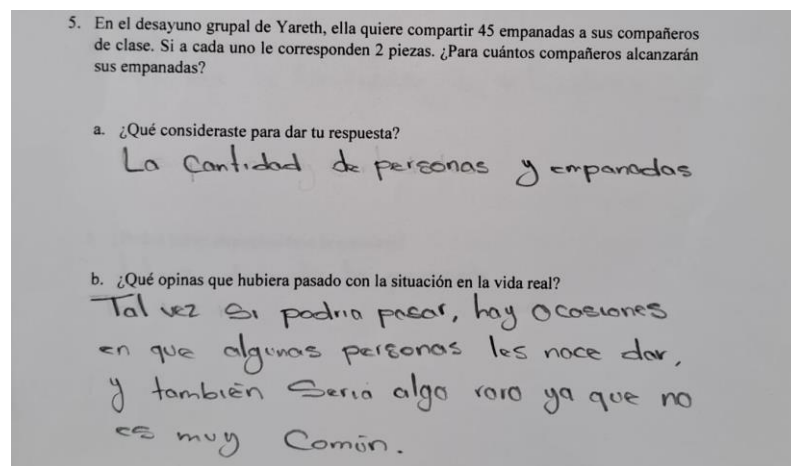 5. En el desayuno grupal de Yareth, ella quiere compartir 45 empanadas a sus compañeros
de clase. Si a cada uno le corresponden 2 piezas. ¿Para cuántos compañeros alcanzarán
sus empanadas?
a. ¿Qué consideraste para dar tu respuesta?
La Cantidad de personas y empanadas
b. ¿Qué opinas que hubiera pasado con la situación en la vida real?
Tal vez si podria pasar, hay ocasiones
en que algunas personas les noce dar,
y también Seria algo raro ya que no
es muy Común.